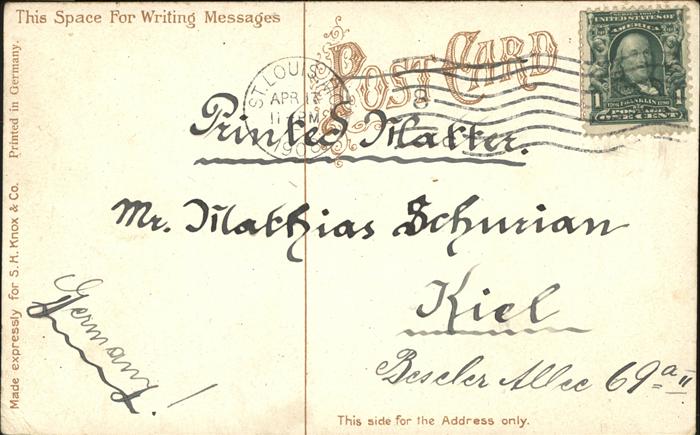 This Space For Writing Messages
POST CARD
SERIES 1902
UNITED STATES OF AMERICA
1 FRANKLIN 1
POSTAGE
ONE CENT
ST. LOUIS, MO.
APR 17
11 PM
190
8
Printed Matter.
Mr. Mathias Schurian
Kiel
Beseler Allee 69a II
Germany!
Made expressly for S. H. Knox & Co. Printed in Germany.
This side for the Address only.